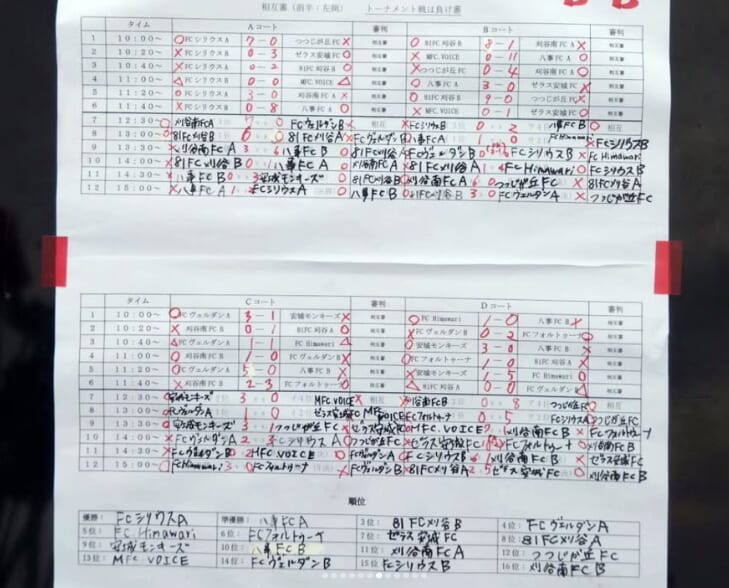 相互審（前半：左側） トーナメント戦は負け審
タイム Aコート 審判 Bコート 審判
1 10:00～ ○FCシリウスA 7-0 つつじが丘FC× 相互審 ○81FC刈谷B 8-1 刈谷南FC A× 相互審
2 10:20～ ×FCシリウスB 0-3 ゼラス安城FC○ 相互審 ×MFC.VOICE 0-11 八事FC A○ 相互審
3 10:40～ ×FCシリウスA 0-2 81FC刈谷B○ 相互審 ×つつじが丘FC 0-4 刈谷南FC A○ 相互審
4 11:00～ △FCシリウスB 0-0 MFC.VOICE△ 相互審 ○八事FC A 3-0 ゼラス安城FC× 相互審
5 11:20～ ○FCシリウスA 3-0 刈谷南FC A× 相互審 ○81FC刈谷B 9-0 つつじが丘FC× 相互審
6 11:40～ ×FCシリウスB 0-8 八事FC A○ 相互審 MFC.VOICE ゼラス安城FC 相互審
7 12:30～ ○刈谷南FCA FCヴェルダンB× 相互 ×FCシリウスB 0 2 八事FC B○ 相互
8 13:00～ ○81FC刈谷B 81FC刈谷A× FCヴェルダンB 八事FCA FC Himawari ×FCシリウスB
9 13:30～ ×刈谷南FC A 3 6 八事FC B○ 81FC刈谷A FCヴェルダンB FCシリウスB FC Himawari
10 14:00～ ×81FC刈谷B 八事FC A 刈谷南FC A ×81FC刈谷A 1 4 FC Himawari○ FCシリウスB
11 14:30～ ×八事FC B 0 3 安城モンキーズ○ 81FC刈谷B 刈谷南FC A 6 0 つつじが丘FC× 81FC刈谷A
12 15:00～ ×八事FC A 1 2 FCシリウスA○ 八事FC B ○81FC刈谷B 3 0 FCヴェルダンA× つつじが丘FC
タイム Cコート 審判 Dコート 審判
1 10:00～ ○FCヴェルダンA 3-1 安城モンキーズ× 相互審 ○FC Himawari 1-0 八事FC B× 相互審
2 10:20～ ×刈谷南FC B 0-1 81FC刈谷A○ 相互審 ×FCヴェルダンB 0-2 FCフォルトゥーナ○ 相互審
3 10:40～ △FCヴェルダンA 1-1 FC Himawari△ 相互審 ○安城モンキーズ 3-0 八事FC B× 相互審
4 11:00～ ○刈谷南FC B 1-0 FCヴェルダンB× 相互審 ○FCフォルトゥーナ 1-0 81FC刈谷A× 相互審
5 11:20～ ○FCヴェルダンA 5-0 八事FC B× 相互審 ×安城モンキーズ 1-5 FC Himawari○ 相互審
6 11:40～ ×刈谷南FC B 2-3 FCフォルトゥーナ○ 相互審 81FC刈谷A 0-0 FCヴェルダンB 相互審
7 12:30～ ○安城モンキーズ 3 0 MFC.VOICE× 相互 ×刈谷南FC B 0 8 つつじが丘FC○ 相互
8 13:00～ ○FCヴェルダンA 1 0 ゼラス安城FC MFC VOICE FCフォルトゥーナ 0 5 FCシリウスA○ つつじが丘FC
9 13:30～ ○安城モンキーズ 3 1 つつじが丘FC× ゼラス安城FC ○MFC.VOICE 刈谷南FC B × FCフォルトゥーナ
10 14:00～ ×FCヴェルダンA 2 3 FCシリウスA○ つつじが丘FC ×ゼラス安城FC FCフォルトゥーナ○ 刈谷南FC B
11 14:30～ ×FCヴェルダンB 0 2 MFC.VOICE○ FCヴェルダンA ○FCシリウスB 刈谷南FC B × ゼラス安城FC
12 15:00～ ○FC Himawari 3 0 FCフォルトゥーナ× FCヴェルダンB ×81FC刈谷A 2 5 ゼラス安城FC○ 刈谷南FC B
順位
優勝： FCシリウスA 準優勝： 八事FC A 3位： 81FC刈谷B 4位： FCヴェルダンA
5位： FC Himawari 6位： FCフォルトゥーナ 7位： ゼラス安城FC 8位： 81FC刈谷A
9位： 安城モンキーズ 10位： 八事FC B 11位： 刈谷南FC A 12位： つつじが丘FC
13位： MFC VOICE 14位： FCヴェルダンB 15位： FCシリウスB 16位： 刈谷南FC B